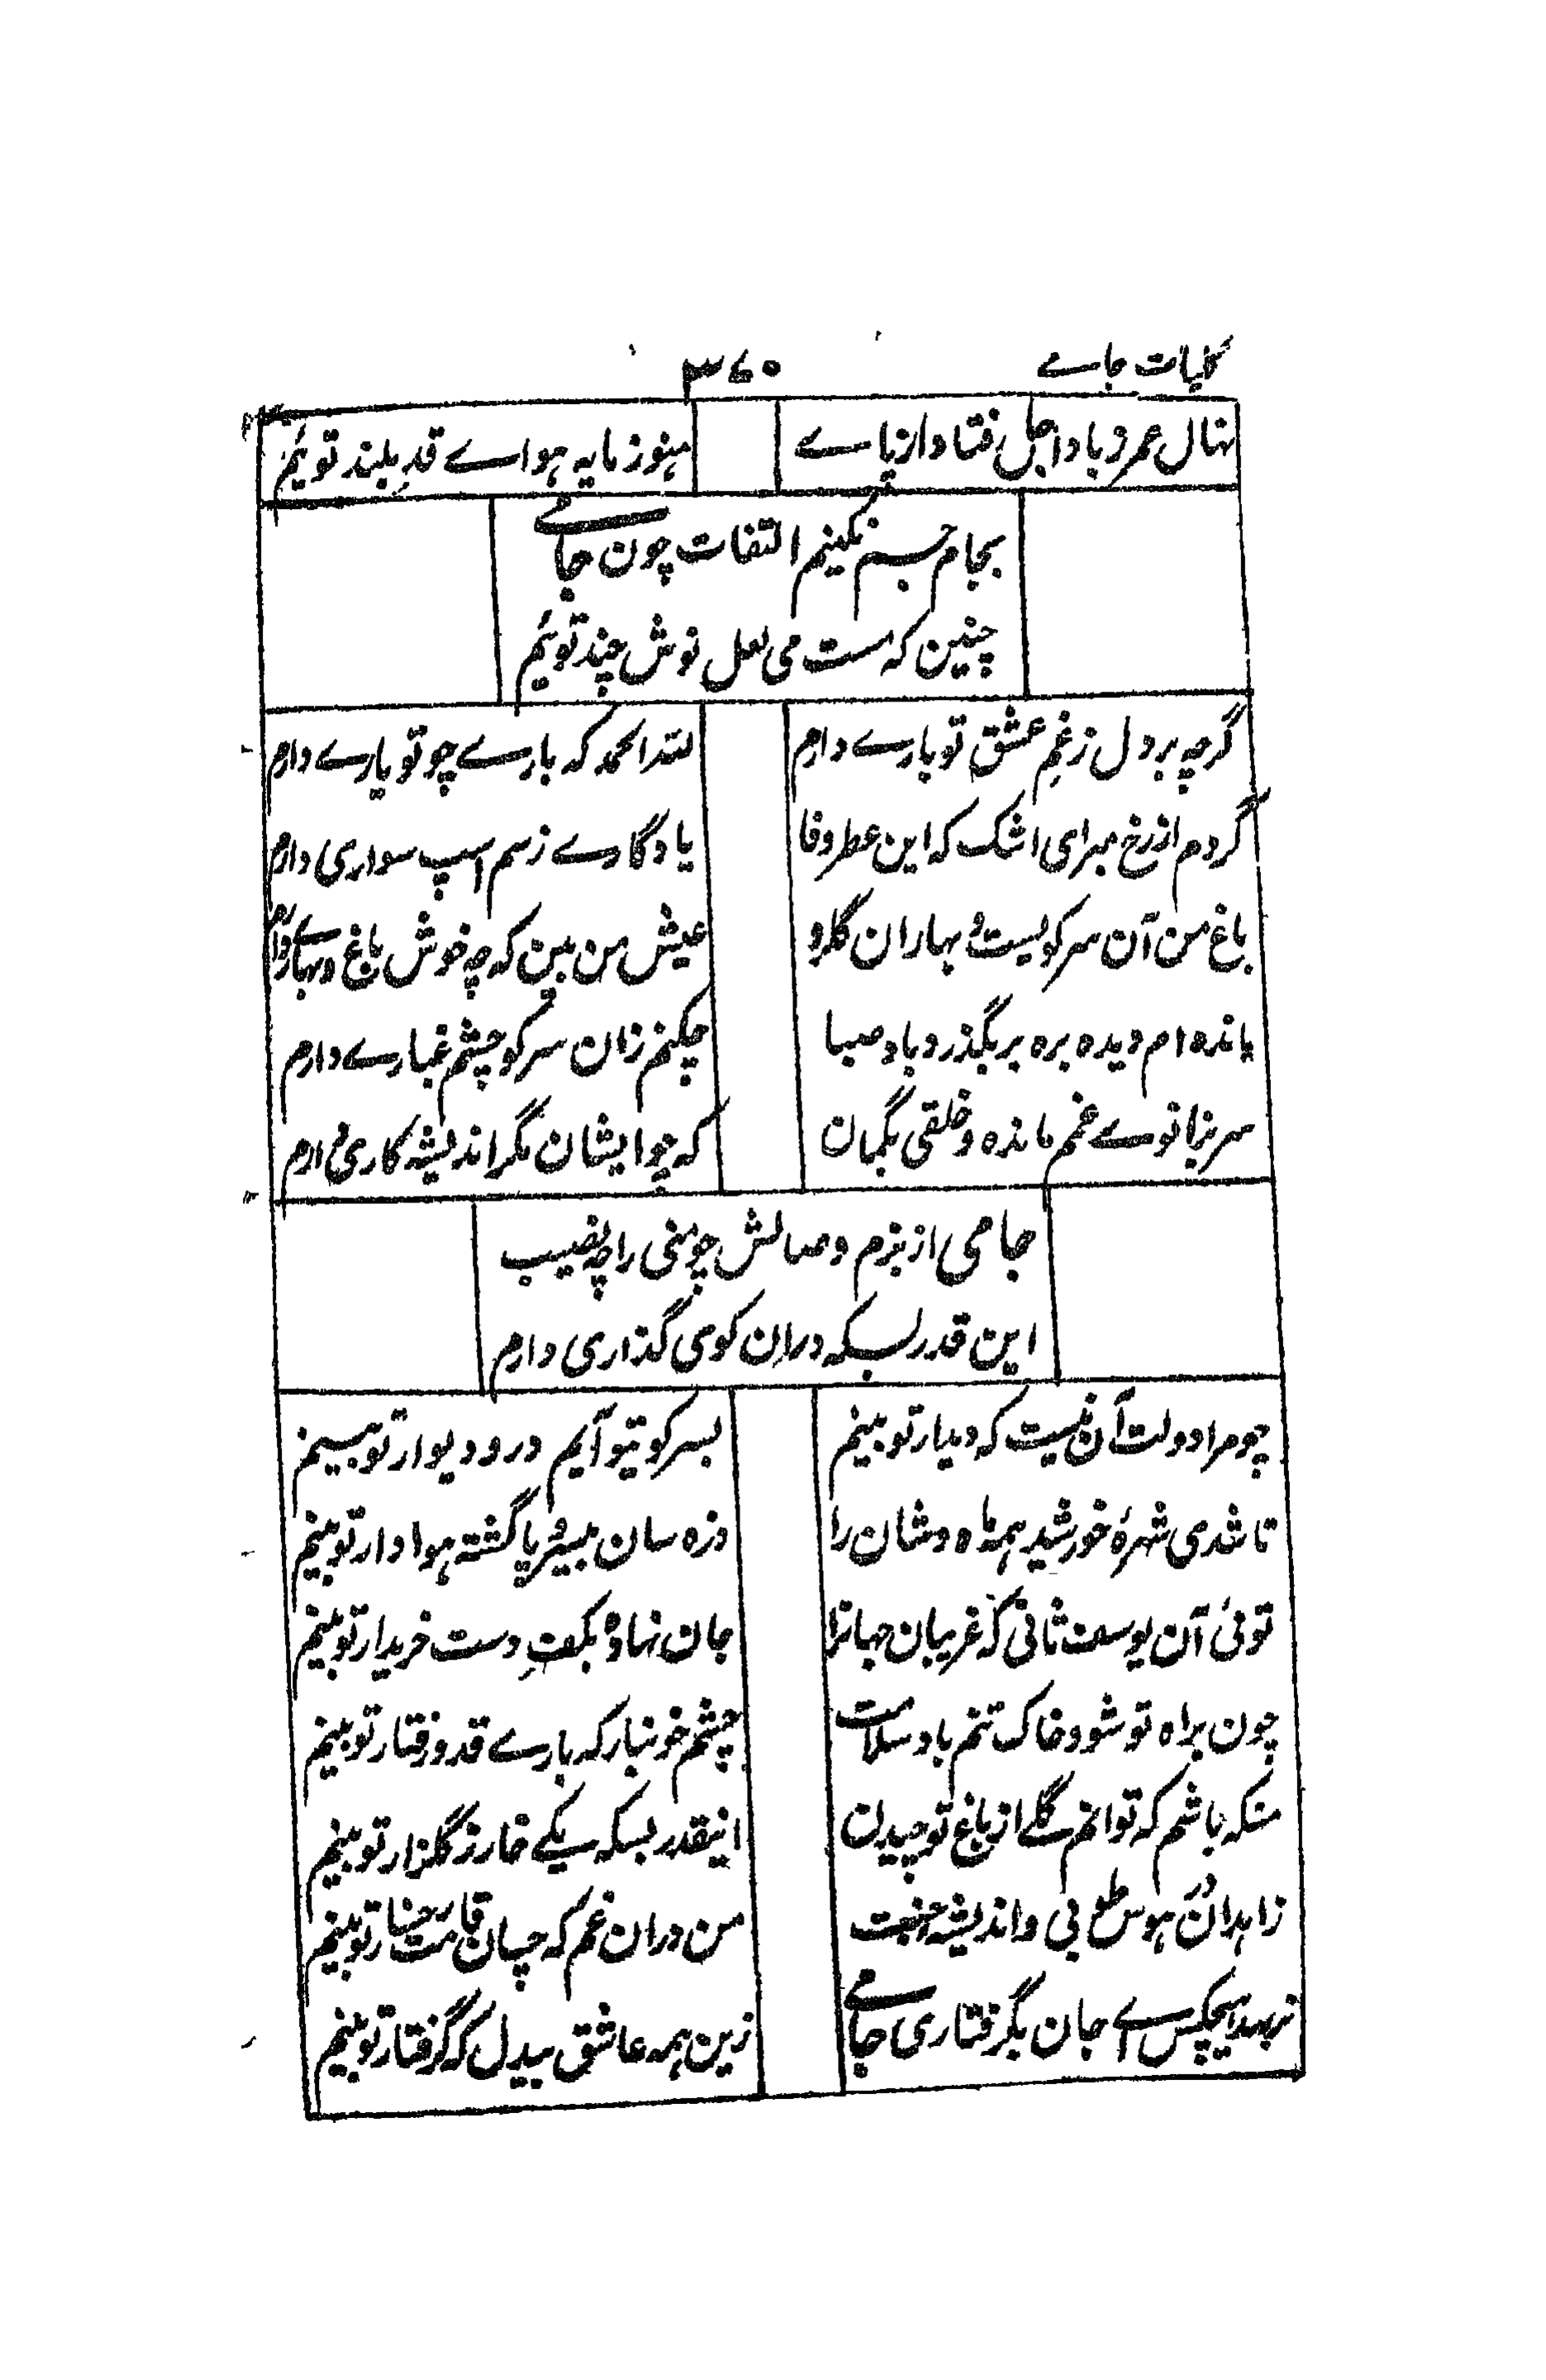 کلیات جامے
۳۶۰
نهال عمر و باد اجل فتاد از پاے
هنوز مایه هواے قدِ بلند توئیم
بجام جم نکنیم التفات چون جامے
چنین که مست می لعل نوش چند توئیم
گرچه بر دل زغمِ عشق تو بارے دارم
للله الحمد که بارے چو تو یارے دارم
گردم از رخ مبر ای اشک که این عطر وفا
یادگارے ز سم اسپ سواری دارم
باغ من آن سر کویست و بهاران گل رو
عیش من بین که چه خوش باغ و بهارے دارم
مانده ام دیده بره بر بگذرد باد صبا
چکنم زان سر کو چشم غبارے دارم
سر بزانوے غم مانده و خلقی بگمان
که چو ایشان مگر اندیشه کاری دارم
جامی از بزم وصالش چو منی را چه نصیب
این قدر بسکه دران کوی گذاری دارم
چو مرا دولت آن نیست که دیدار تو بینم
بسر کوتیو آیم در و دیوار تو بینم
تا شدی شهرهٔ خورشید همه ماه وشان را
ذره سان بی سر و پا گشته هوادار تو بینم
توئی آن یوسف ثانی که غریبان جهانرا
جان نهاده بکفِ دست خریدار تو بینم
چون براه تو شود خاک تنم باد سلامت
چشم خونبار که بارے قد و رفتار تو بینم
منکه باشم که توانم گلے از باغ تو چیدن
اینقدر بسکه یکے خار ز گلزار تو بینم
زاهدان در هوس طوبی و اندیشه جنت
من دران غم که چسان قامت رخسار تو بینم
نرهد هیچکس اے جان بگرفتاری جامے
زین همه عاشق بیدل که گرفتار تو بینم